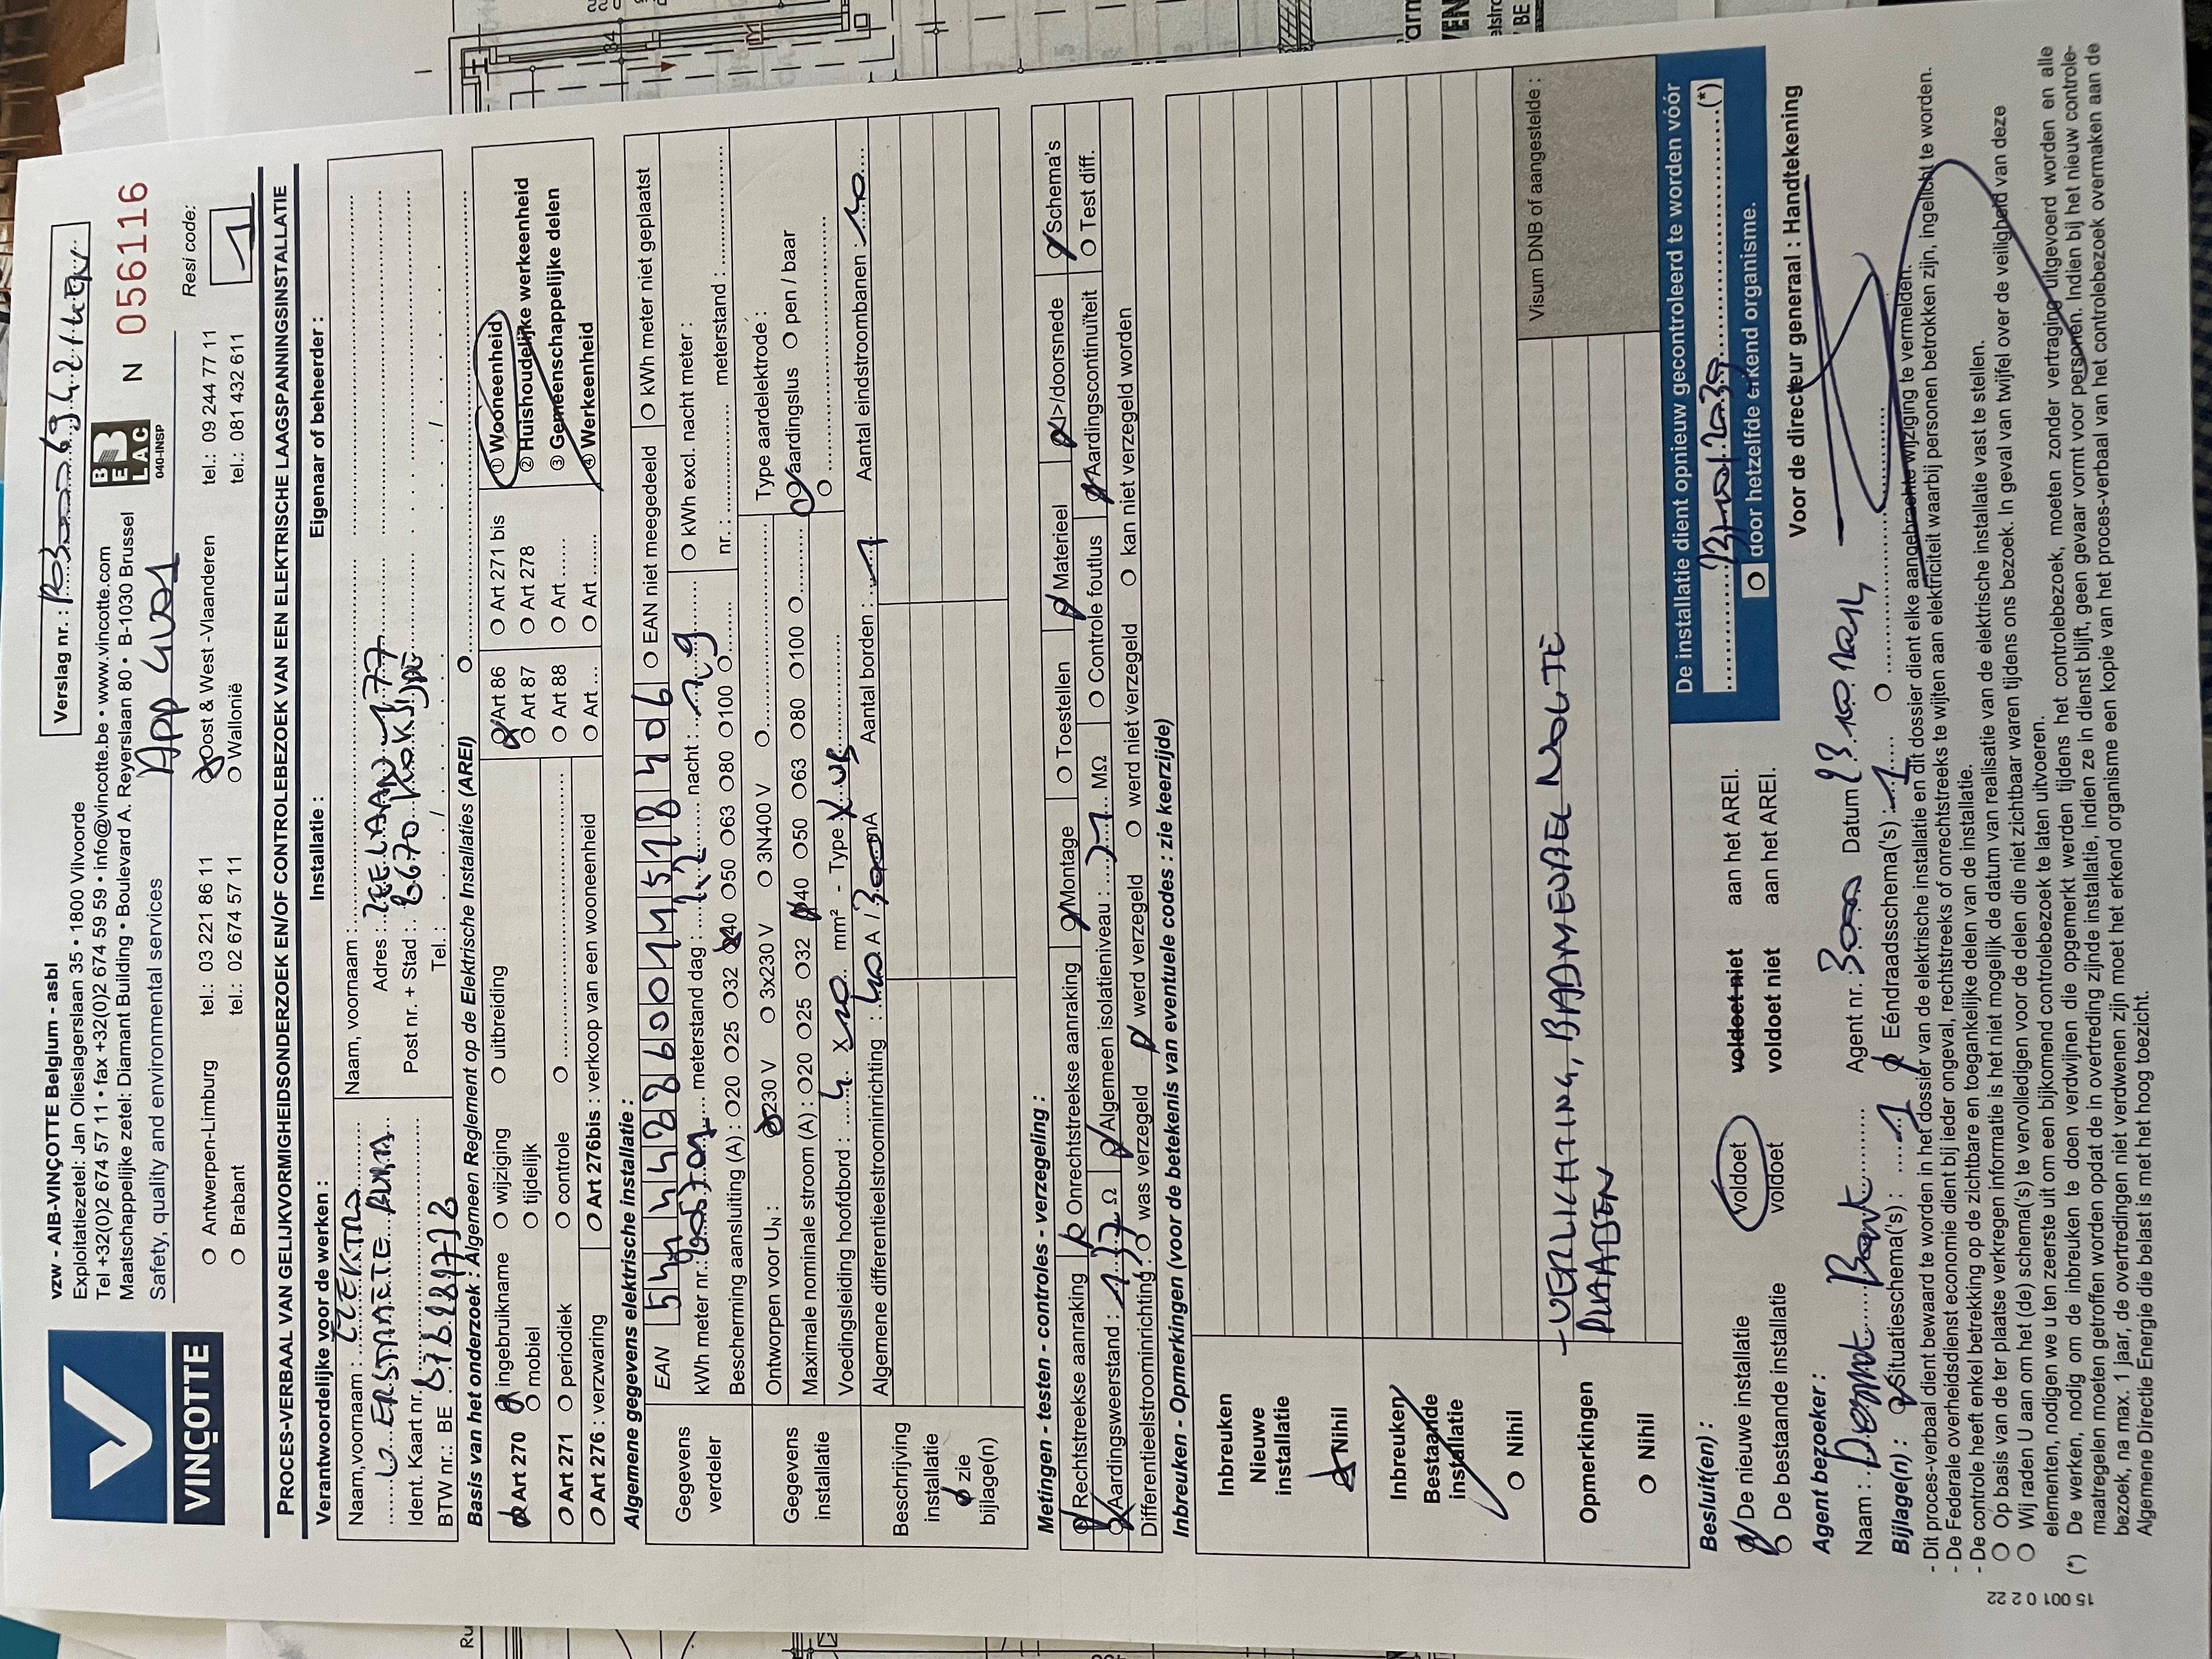 VINÇOTTE
vzw - AIB-VINÇOTTE Belgium - asbl
Exploitatiezetel: Jan Olieslagerslaan 35 • 1800 Vilvoorde
Tel +32(0)2 674 57 11 • fax +32(0)2 674 59 59 • info@vincotte.be • www.vincotte.com
Maatschappelijke zetel: Diamant Building • Boulevard A. Reyerslaan 80 • B-1030 Brussel
Safety, quality and environmental services
App
Verslag nr. :
BELAC
040-INSP
N 056116
Resi code:
1
O Antwerpen-Limburg tel.: 03 221 86 11 Oost & West -Vlaanderen tel.: 09 244 77 11
O Brabant tel.: 02 674 57 11 O Wallonië tel.: 081 432 611
PROCES-VERBAAL VAN GELIJKVORMIGHEIDSONDERZOEK EN/OF CONTROLEBEZOEK VAN EEN ELEKTRISCHE LAAGSPANNINGSINSTALLATIE
Verantwoordelijke voor de werken : Installatie : Eigenaar of beheerder :
Naam,voornaam : Naam, voornaam :
Adres : ZEELAAN 177
Ident. Kaart nr. Post nr. + Stad : 8670 KOKSIJDE
BTW nr.: BE Tel. :
Basis van het onderzoek : Algemeen Reglement op de Elektrische Installaties (AREI)
Art 270 ingebruikname O wijziging O uitbreiding Art 86 O Art 271 bis ① Wooneenheid
O mobiel O tijdelijk O Art 87 O Art 278 ② Huishoudelijke werkeenheid
O Art 271 O periodiek O controle O O Art 88 O Art ③ Gemeenschappelijke delen
O Art 276 : verzwaring O Art 276bis : verkoop van een wooneenheid O Art ... O Art ④ Werkeenheid
Algemene gegevens elektrische installatie :
Gegevens verdeler
EAN O EAN niet meegedeeld O kWh meter niet geplaatst
kWh meter nr.: meterstand dag : nacht : O kWh excl. nacht meter :
nr. : meterstand :
Bescherming aansluiting (A) : O20 O25 O32 40 O50 O63 O80 O100 O
Gegevens installatie
Ontworpen voor UN : 230 V O 3x230 V O 3N400 V O Type aardelektrode :
Maximale nominale stroom (A) : O20 O25 O32 40 O50 O63 O80 O100 O aardingslus O pen / baar
Voedingsleiding hoofdbord : 4 X 10 mm² - Type XVB O
Algemene differentieelstroominrichting : 40 A / 300 mA Aantal borden : 1 Aantal eindstroombanen : 10
Beschrijving installatie
zie bijlage(n)
Metingen - testen - controles - verzegeling :
Rechtstreekse aanraking Onrechtstreekse aanraking Montage O Toestellen Materieel I>/doorsnede Schema's
Aardingsweerstand : Ω Algemeen isolatieniveau : MΩ O Controle foutlus Aardingscontinuïteit O Test diff.
Differentieelstroominrichting : O was verzegeld werd verzegeld O werd niet verzegeld O kan niet verzegeld worden
Inbreuken - Opmerkingen (voor de betekenis van eventuele codes : zie keerzijde)
Inbreuken
Nieuwe
installatie
Nihil
Inbreuken
Bestaande
installatie
O Nihil
Opmerkingen
O Nihil
- VERLICHTING, BADMEUBEL NOG TE
PLAATSEN
Visum DNB of aangestelde :
Besluit(en) :
De nieuwe installatie voldoet voldoet niet aan het AREI.
O De bestaande installatie voldoet voldoet niet aan het AREI.
De installatie dient opnieuw gecontroleerd te worden vóór
23/10/2039 (*)
O door hetzelfde erkend organisme.
Agent bezoeker : Voor de directeur generaal : Handtekening
Naam : Bart Agent nr. Datum 23.10.2014
Bijlage(n) : Situatieschema('s) : 1 Eéndraadsschema('s) : 1 O
- Dit proces-verbaal dient bewaard te worden in het dossier van de elektrische installatie en dit dossier dient elke aangebrachte wijziging te vermelden.
- De Federale overheidsdienst economie dient bij ieder ongeval, rechtstreeks of onrechtstreeks te wijten aan elektriciteit waarbij personen betrokken zijn, ingelicht te worden.
- De controle heeft enkel betrekking op de zichtbare en toegankelijke delen van de installatie.
O Op basis van de ter plaatse verkregen informatie is het niet mogelijk de datum van realisatie van de elektrische installatie vast te stellen.
O Wij raden U aan om het (de) schema('s) te vervolledigen voor de delen die niet zichtbaar waren tijdens ons bezoek. In geval van twijfel over de veiligheid van deze
elementen, nodigen we u ten zeerste uit om een bijkomend controlebezoek te laten uitvoeren.
(*) De werken, nodig om de inbreuken te doen verdwijnen die opgemerkt werden tijdens het controlebezoek, moeten zonder vertraging uitgevoerd worden en alle
maatregelen moeten getroffen worden opdat de in overtreding zijnde installatie, indien ze in dienst blijft, geen gevaar vormt voor personen. Indien bij het nieuw controle-
bezoek, na max. 1 jaar, de overtredingen niet verdwenen zijn moet het erkend organisme een kopie van het proces-verbaal van het controlebezoek overmaken aan de
Algemene Directie Energie die belast is met het hoog toezicht.
15 001 0 2 22